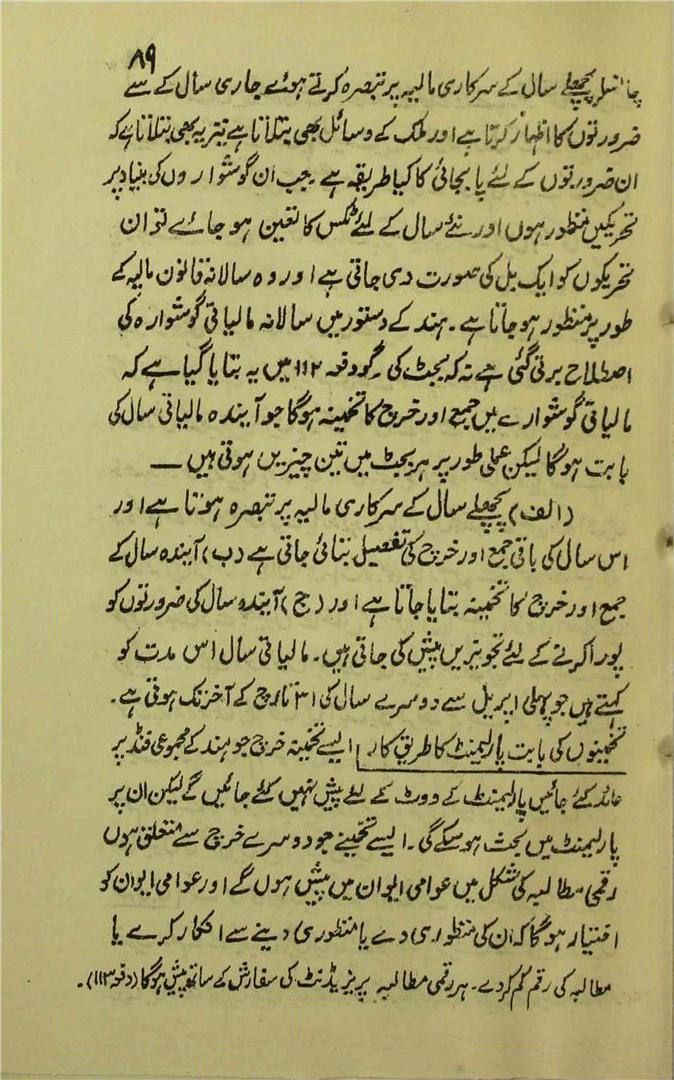 ۸۹
چانسلر پچھلے سال کے سرکاری مالیہ پر تبصرہ کرتے ہوئے جاری سال کے سے
ضرورتوں کا اظہار کرتا ہے اور ملک کے وسائل بھی بتلاتا ہے نیز یہ بھی بتلاتا ہے کہ
ان ضرورتوں کے لئے پابجائی کا کیا طریقہ ہے ۔ جب ان گوشواروں کی بنیاد پر
تحریکیں منظور ہوں اور نئے سال کے لئے ٹکس کا تعین ہو جائے تو ان
تحریکوں کو ایک بل کی صورت دی جاتی ہے اور وہ سالانہ قانون مالیہ کے
طور پر منظور ہو جاتا ہے ۔ ہند کے دستور میں سالانہ مالیاتی گوشوارہ کی
اصطلاح برتی گئی ہے نہ کہ بجٹ کی ۔ گو دفعہ ۱۱۲ میں یہ بتایا گیا ہے کہ
مالیاتی گوشوارے میں جمع اور خرچ کا تخمینہ ہوگا جو آیندہ مالیاتی سال کی
بابت ہوگا لیکن عملی طور پر ہر بجٹ میں تین چیزیں ہوتی ہیں —
(الف) پچھلے سال کے سرکاری مالیہ پر تبصرہ ہوتا ہے اور
اس سال کی باقی جمع اور خرچ کی تفصیل بتائی جاتی ہے (ب) آیندہ سال کے
جمع اور خرچ کا تخمینہ بتایا جاتا ہے اور (ج) آیندہ سال کی ضرورتوں کو
پورا کرنے کے لئے تجویزیں پیش کی جاتی ہیں ۔ مالیاتی سال اس مدت کو
کہتے ہیں جو پہلی اپریل سے دوسرے سال کی ۳۱ مارچ کے آخر تک ہوتی ہے ۔
تخمینوں کی بابت پارلیمنٹ کا طریق کار | ایسے تخمینہ خرچ جو ہند کے مجموعی فنڈ پر
عائد کئے جائیں پارلیمنٹ کے ووٹ کے لئے پیش نہیں کئے جائیں گے لیکن ان پر
پارلیمنٹ میں بحث ہو سکے گی ۔ ایسے تخمینے جو دوسرے خرچ سے متعلق ہوں
رقمی مطالبہ کی شکل میں عوامی ایوان میں پیش ہوں گے اور عوامی ایوان کو
اختیار ہوگا کہ ان کی منظوری دے یا منظوری دینے سے انکار کرے یا
مطالبہ کی رقم کم کر دے ۔ ہر رقمی مطالبہ پریزیڈنٹ کی سفارش کے ساتھ پیش ہوگا (دفعہ ۱۱۳) ۔